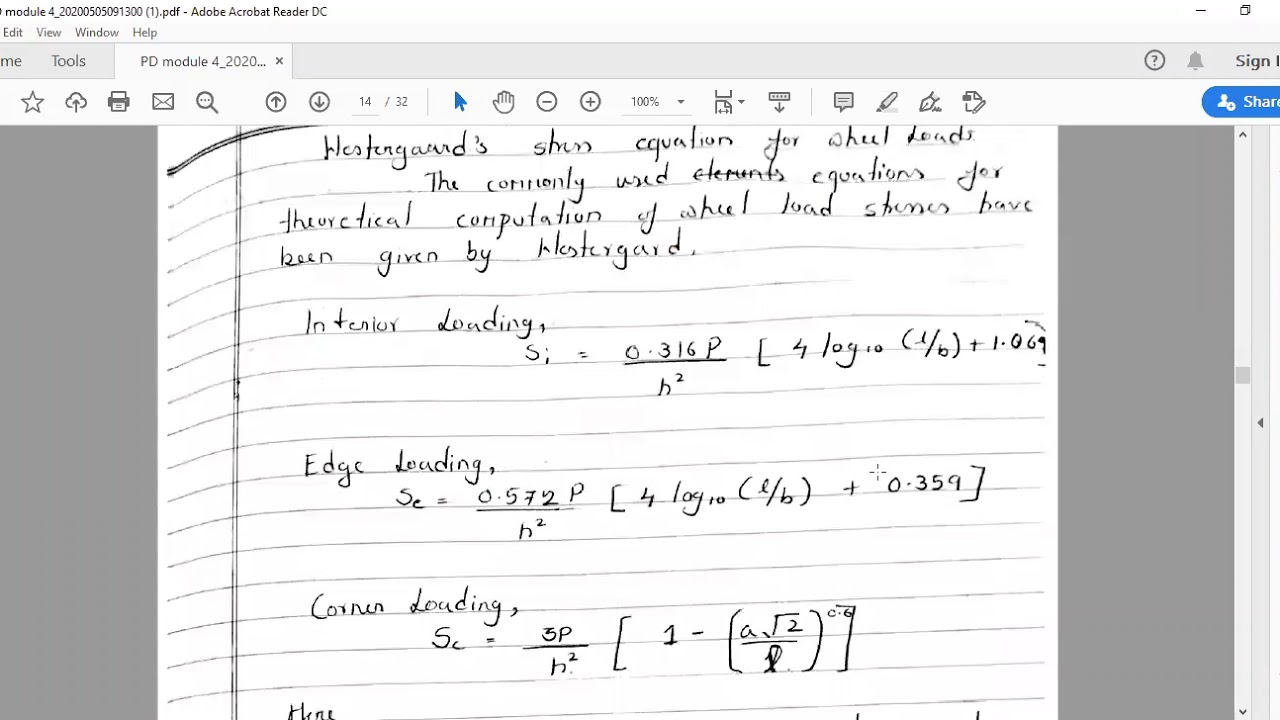 D module 4_20200505091300 (1).pdf - Adobe Acrobat Reader DC
Edit View Window Help
me Tools PD module 4_2020... × Sign I
14 / 32 100% Share
Westergaard's stress equation for wheel loads.
The commonly used elements equations for
theoretical computation of wheel load stresses have
been given by Westergard.
Interior Loading,
Si = 0.316 P / h² [ 4 log₁₀ (l/b) + 1.069
Edge Loading,
Se = 0.572 P / h² [ 4 log₁₀ (l/b) + 0.359 ]
Corner Loading,
Sc = 3P / h² [ 1 - (a√2 / l)^0.6 ]
Here